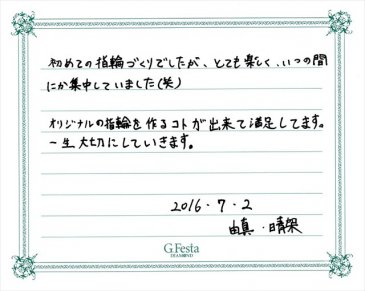 初めての指輪づくりでしたが、とても楽しく、いつの間
にか集中していました(笑)
オリジナルの指輪を作るコトが出来て満足してます。
一生大切にしていきます。
2016・7・2
由真・晴架
G.Festa
DIAMOND